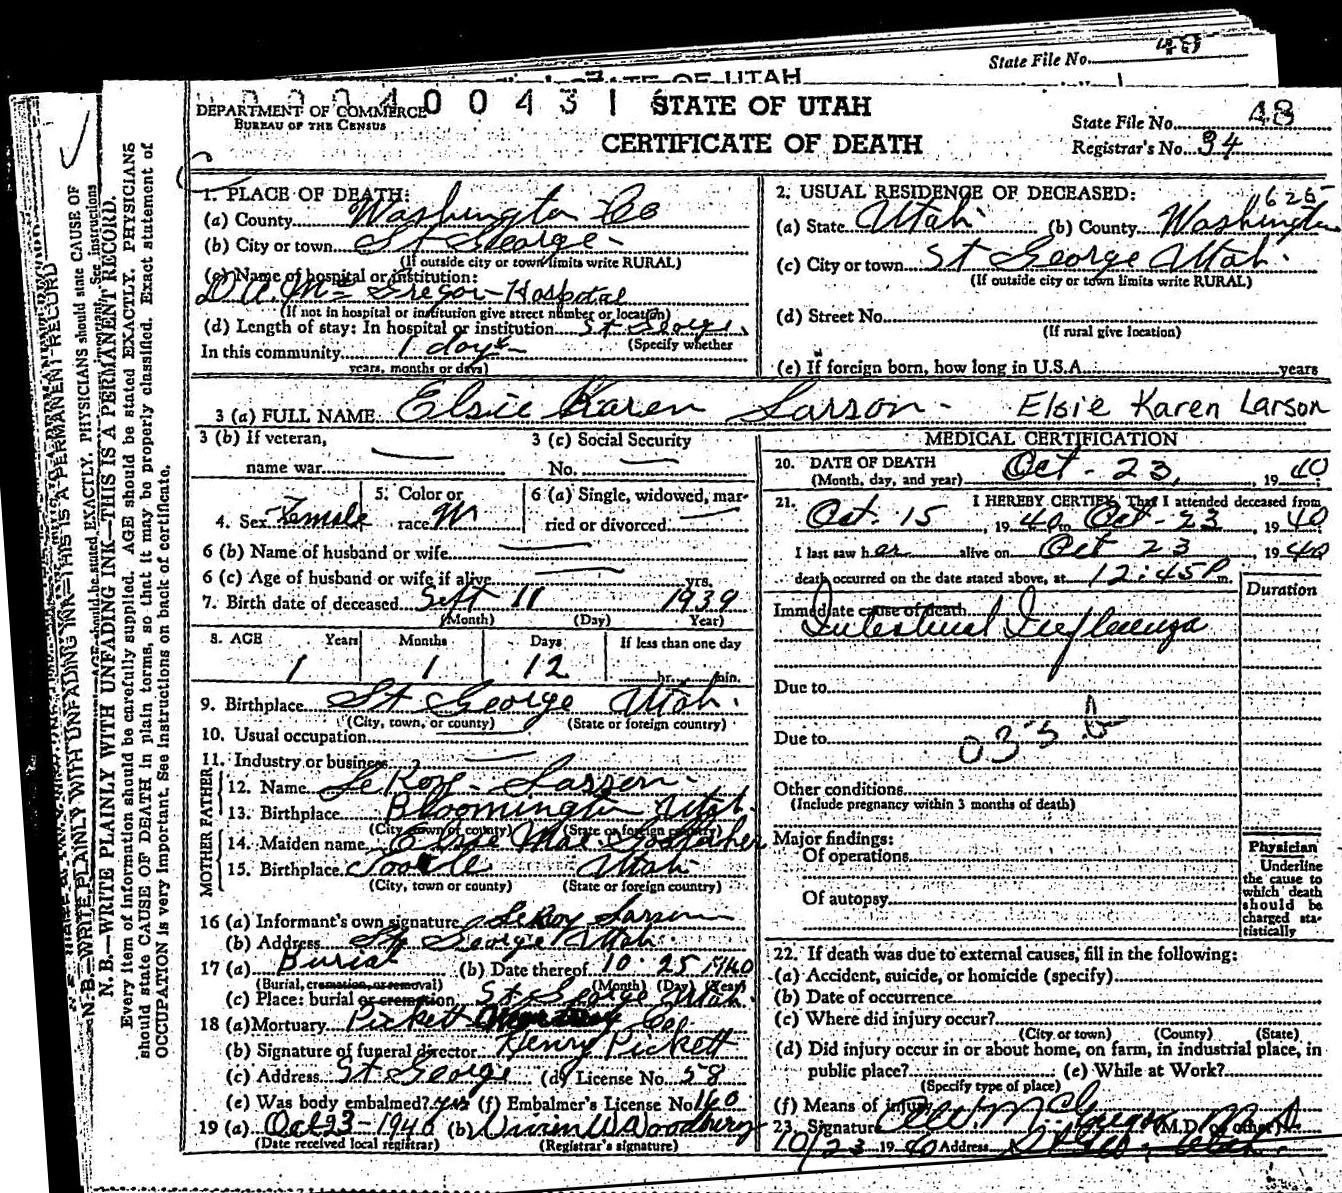 State File No. 49
STATE OF UTAH
0 0 0 4 0 0 4 3 1
DEPARTMENT OF COMMERCE
BUREAU OF THE CENSUS
STATE OF UTAH
CERTIFICATE OF DEATH
State File No. 48
Registrar's No. 34
1. PLACE OF DEATH:
(a) County Washington Co
(b) City or town St George -
(If outside city or town limits write RURAL)
(c) Name of hospital or institution:
D. A. McGregor - Hospital
(If not in hospital or institution give street number or location)
(d) Length of stay: In hospital or institution St George.
(Specify whether
In this community 1 day
years, months or days)
2. USUAL RESIDENCE OF DECEASED:
625
(a) State Utah (b) County Washington
(c) City or town St George Utah.
(If outside city or town limits write RURAL)
(d) Street No.
(If rural give location)
(e) If foreign born, how long in U.S.A. years
3 (a) FULL NAME Elsie Karen Larson - Elsie Karen Larson
3 (b) If veteran,
name war
3 (c) Social Security
No.
4. Sex Female
5. Color or
race W
6 (a) Single, widowed, mar-
ried or divorced
6 (b) Name of husband or wife
6 (c) Age of husband or wife if alive yrs.
7. Birth date of deceased Sept 11 1939
(Month) (Day) Year)
8. AGE Years Months Days If less than one day
1 1 12 hr. min.
9. Birthplace St George Utah.
(City, town, or county) (State or foreign country)
10. Usual occupation
11. Industry or business
FATHER
12. Name LeRoy - Larson -
13. Birthplace Bloomington Utah.
(City, town or county) (State or foreign country)
MOTHER
14. Maiden name Elsie Mae
15. Birthplace Tooele Utah
(City, town or county) (State or foreign country)
16 (a) Informant's own signature LeRoy Larson
(b) Address St George Utah.
17 (a) Burial (b) Date thereof 10 - 25 1940
(Burial, cremation, or removal) (Month) (Day) (Year)
(c) Place: burial or cremation St George Utah.
18 (a) Mortuary Pickett Co.
(b) Signature of funeral director Henry Pickett
(c) Address St George (d) License No. 58
(e) Was body embalmed? yes (f) Embalmer's License No. 160
19 (a) Oct 23 - 1940 (b) Vivian W Woodbury
(Date received local registrar) (Registrar's signature)
MEDICAL CERTIFICATION
20. DATE OF DEATH
(Month, day, and year) Oct - 23, , 19 40
21. I HEREBY CERTIFY, That I attended deceased from
Oct. 15 , 19 40 to Oct - 23 19 40
I last saw her alive on Oct 23 , 19 40
death occurred on the date stated above, at 12:45 P m.
Duration
Immediate cause of death
Intestinal Influenza
Due to
Due to 033 b
Other conditions
(Include pregnancy within 3 months of death)
Major findings:
Of operations
Of autopsy
Physician
Underline
the cause to
which death
should be
charged sta-
tistically
22. If death was due to external causes, fill in the following:
(a) Accident, suicide, or homicide (specify)
(b) Date of occurrence
(c) Where did injury occur?
(City or town) (County) (State)
(d) Did injury occur in or about home, on farm, in industrial place, in
public place? (e) While at Work?
(Specify type of place)
(f) Means of injury
23. Signature McGregor M.D. (M.D. or other)
10/23 19 40 Address St Geo, Utah.
N. B.—WRITE PLAINLY WITH UNFADING INK—THIS IS A PERMANENT RECORD.
Every item of information should be carefully supplied. AGE should be stated EXACTLY. PHYSICIANS
should state CAUSE OF DEATH in plain terms, so that it may be properly classified. Exact statement of
OCCUPATION is very important. See instructions on back of certificate.